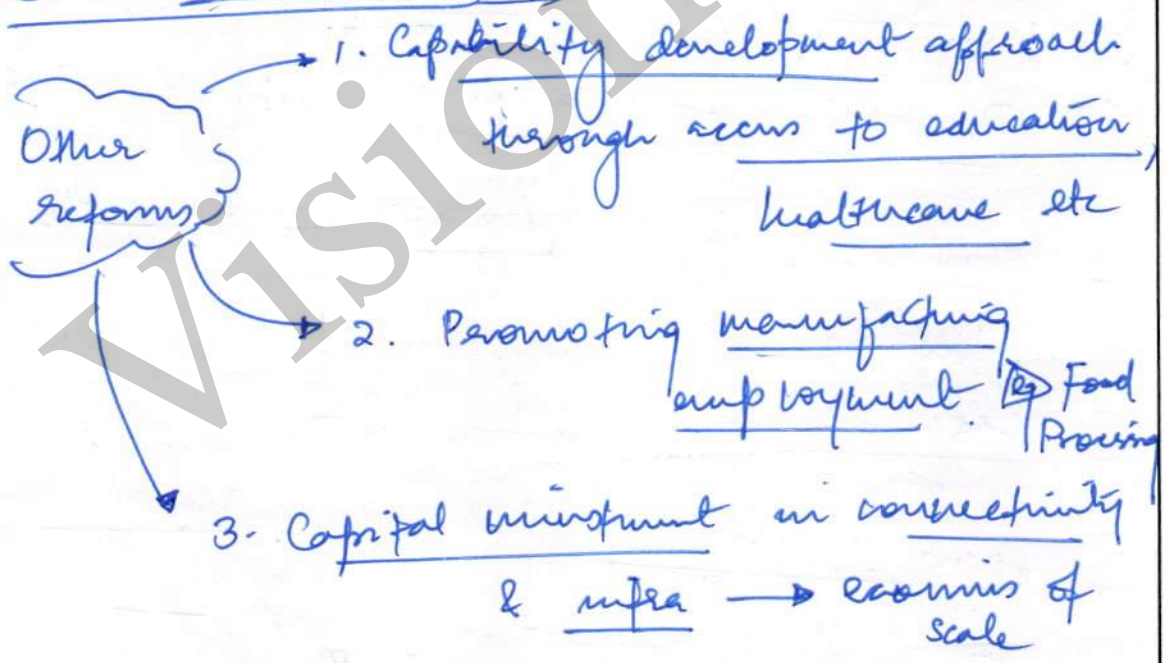 1. Capability development approach
through access to education,
healthcare etc
Other
reforms
2. Promoting manufacturing
employment. eg Food
Processing
3. Capital investment in connectivity
& infra → economies of
scale
Vision